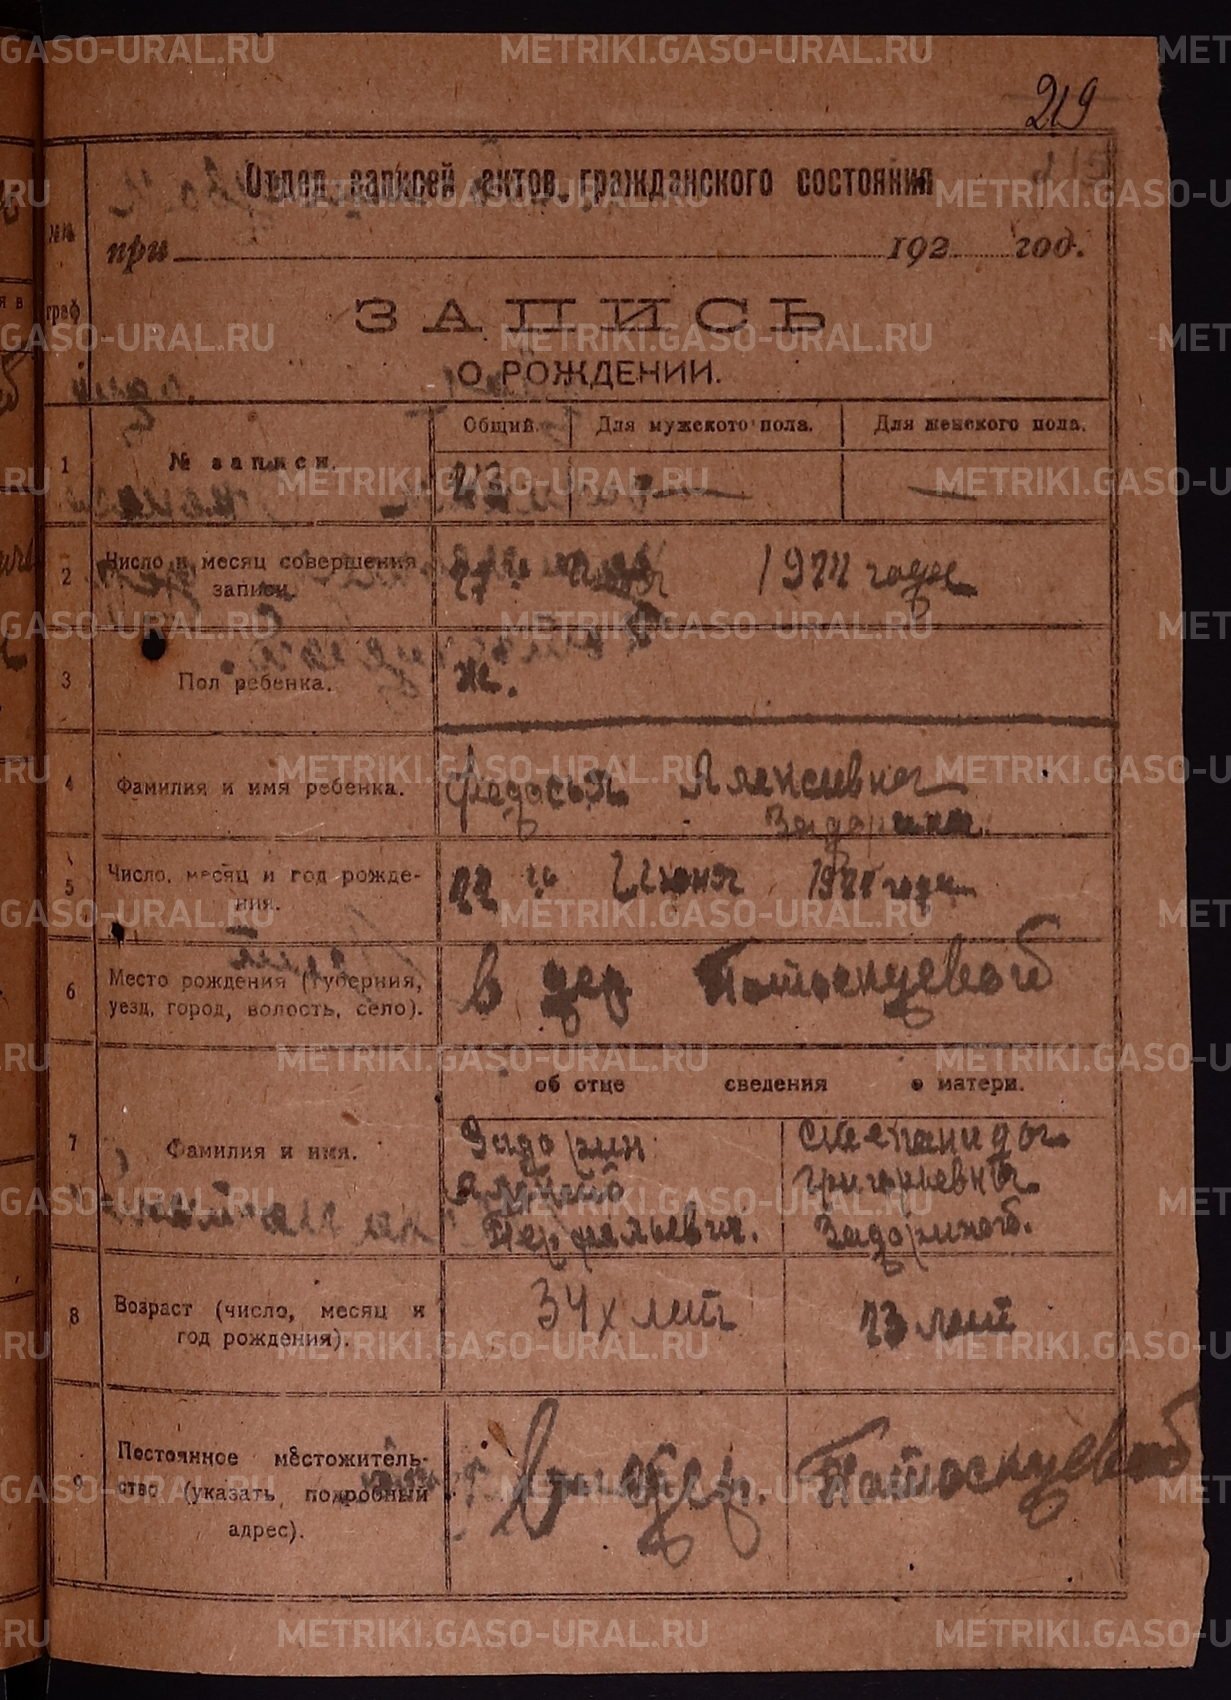 219
Отдел записей актов гражданского состояния
при 192 год.
№№ граф
ЗАПИСЬ
О РОЖДЕНИИ.
Общий. Для мужского пола. Для женского пола.
1 № записи. 23 — —
2 Число и месяц совершения записи. 27го 1922 года
3 Пол ребенка. ж.
4 Фамилия и имя ребенка. Федосья Алексеевна
Задорина
5 Число, месяц и год рождения. 22 го Июня 192 года
6 Место рождения (губерния, уезд, город, волость, село). в дер Потоскуевой
об отце сведения о матери.
7 Фамилия и имя.
Задорин Степанида
Алексей Григорьевна
Перфильевич. Задориной.
8 Возраст (число, месяц и год рождения). 34х лет 23 лет
9 Постоянное местожительство (указать подробный адрес). В дер. Потоскуевой
METRIKI.GASO-URAL.RU